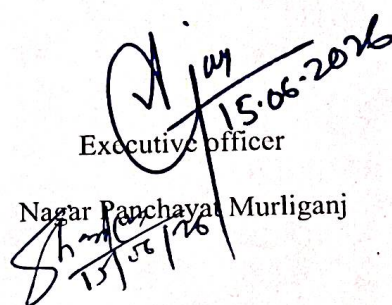 15.06.2026
Executive officer
Nagar Panchayat Murliganj
15/06/26